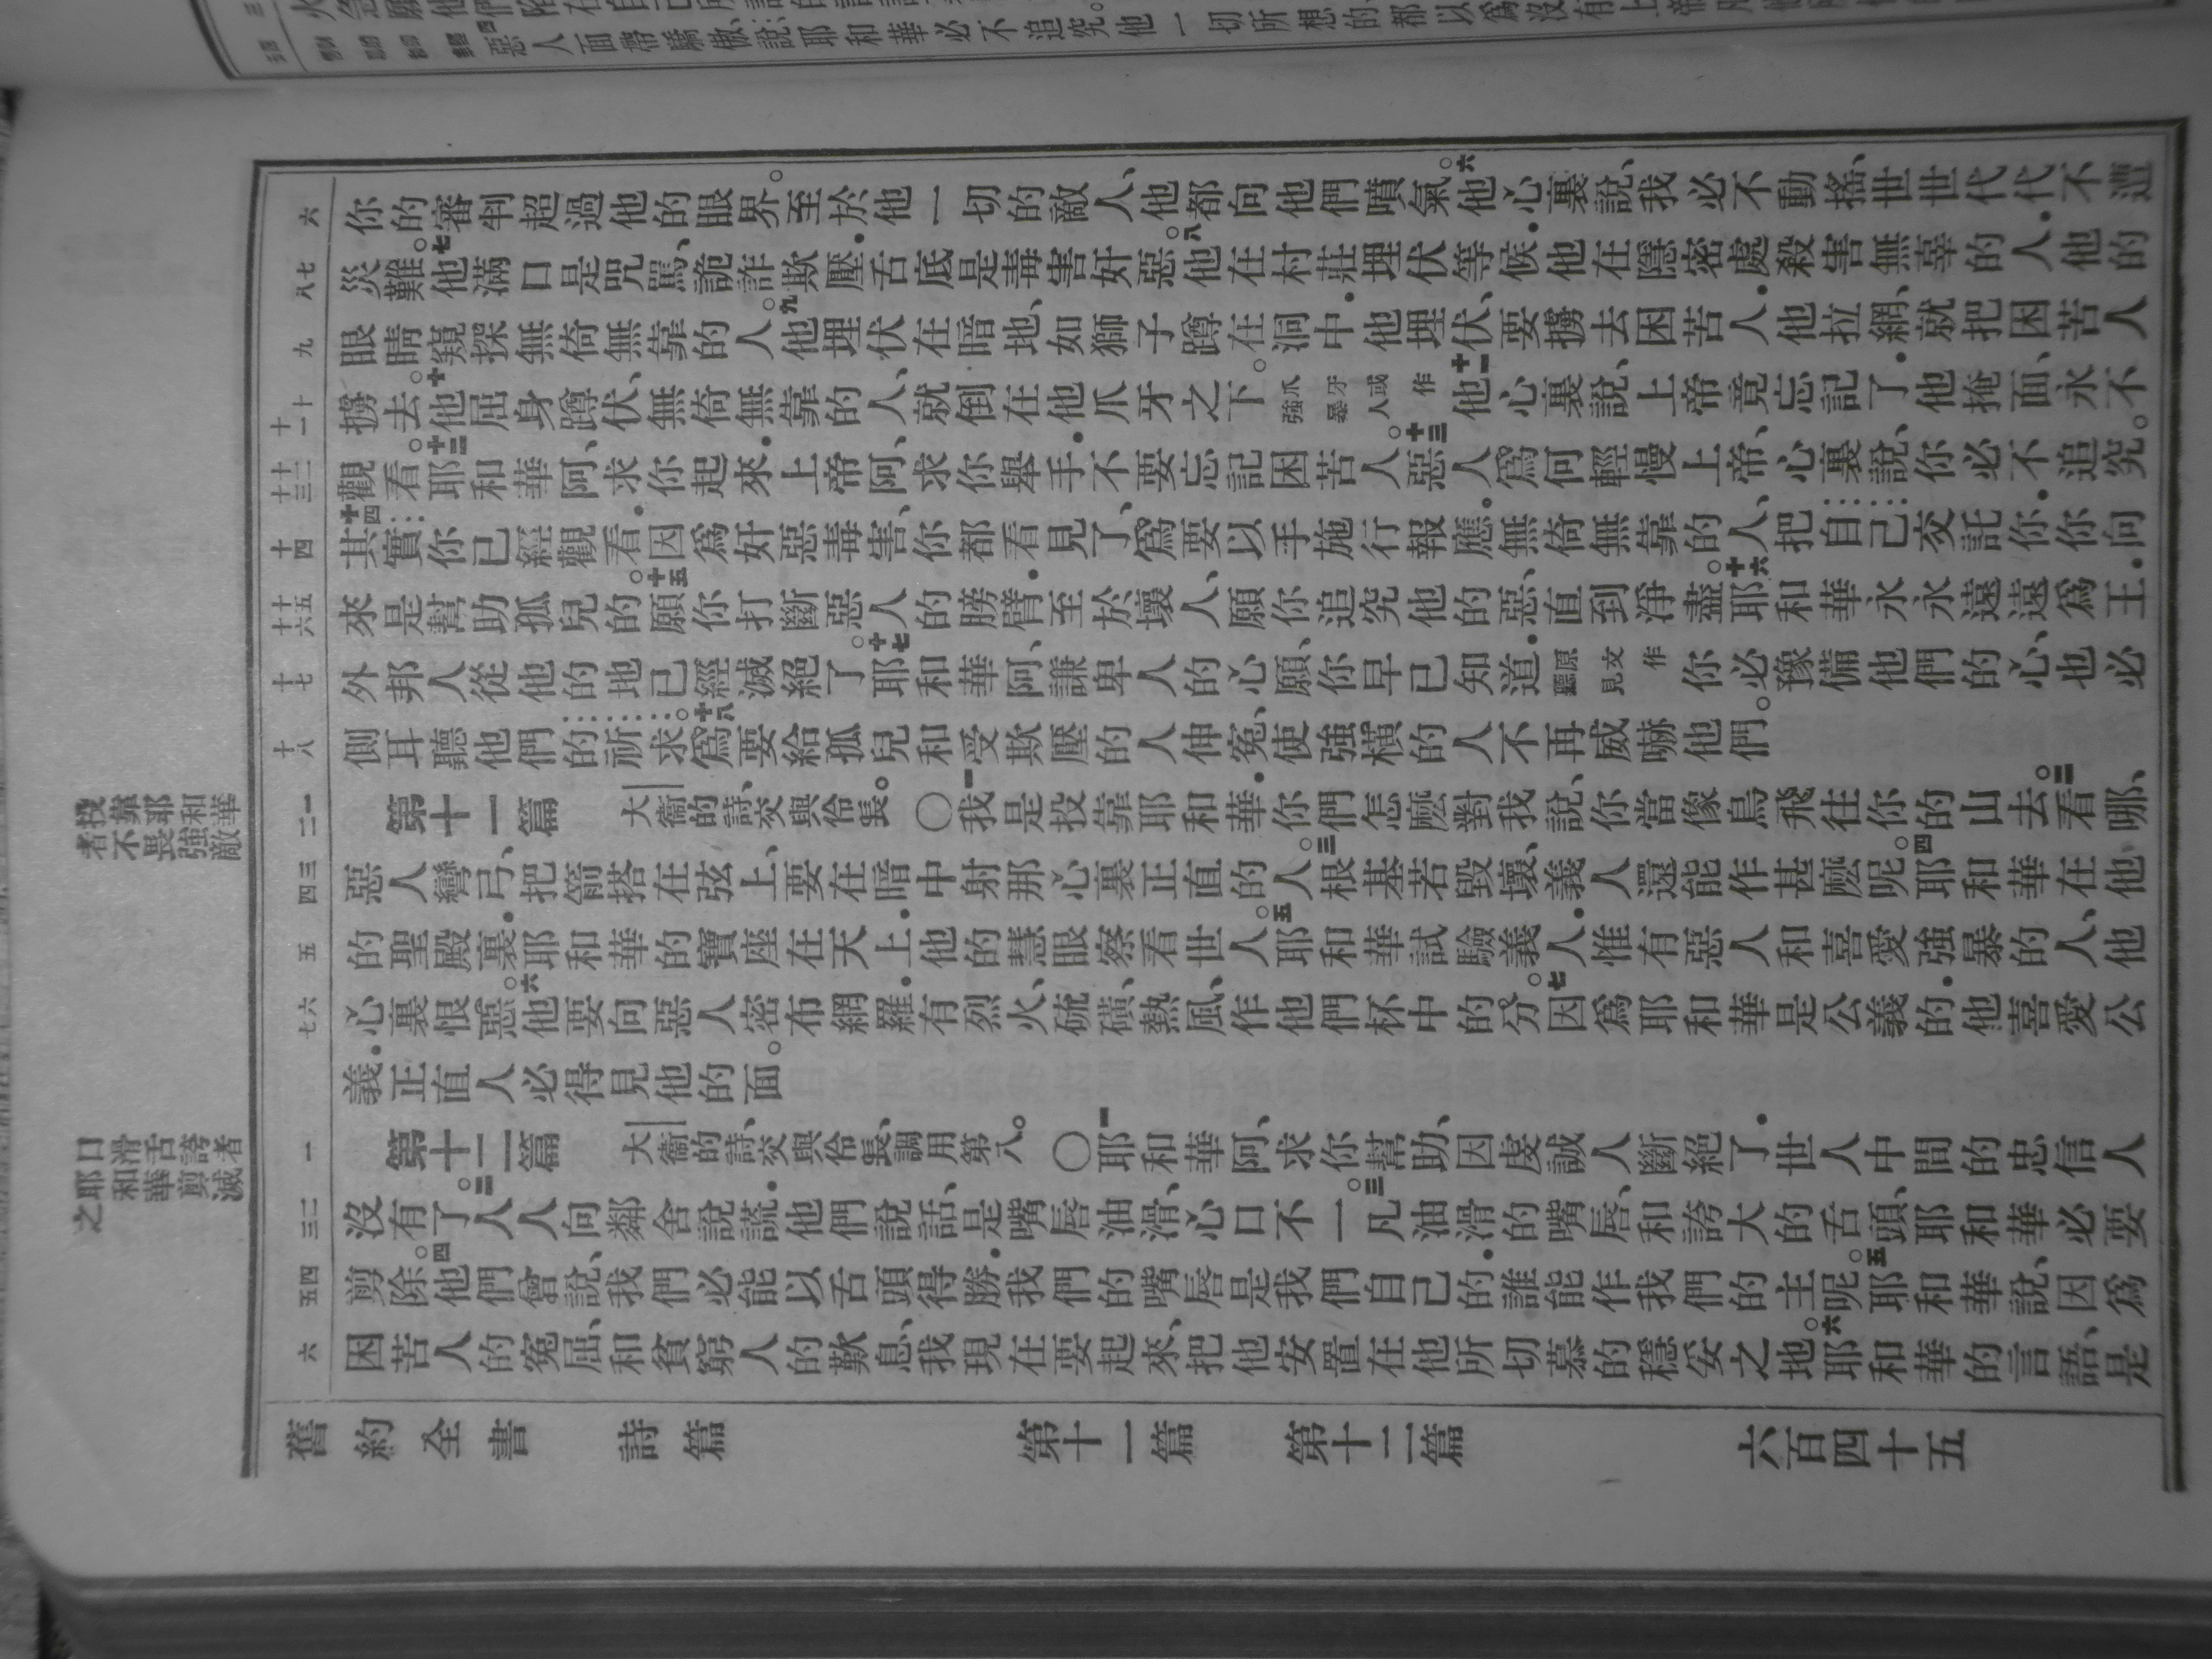 惡人面帶驕傲、說、耶和華必不追究。他一切所想的、都以爲沒有上帝
你的審判超過他的眼界。至於他一切的敵人、他都向他們噴氣。六他心裏說、我必不動搖、世世代代不遭
災難。七他滿口是咒罵、詭詐、欺壓.舌底是毒害奸惡。八他在村莊埋伏等候.他在隱密處殺害無辜的人.他的
眼睛窺探無倚無靠的人。九他埋伏在暗地、如獅子蹲在洞中.他埋伏、要擄去困苦人.他拉網、就把困苦人
擄去。十他屈身蹲伏、無倚無靠的人、就倒在他爪牙之下。爪牙或作強暴人十一他心裏說、上帝竟忘記了.他掩面、永不
觀看。十二耶和華阿、求你起來.上帝阿、求你舉手.不要忘記困苦人。十三惡人爲何輕慢上帝、心裏說、你必不追究。
十四其實你已經觀看.因爲奸惡毒害、你都看見了、爲要以手施行報應.無倚無靠的人、把自己交託你.你向
來是幫助孤兒的。十五願你打斷惡人的膀臂.至於壞人、願你追究他的惡、直到淨盡。十六耶和華永永遠遠爲王.
外邦人從他的地已經滅絕了。十七耶和華阿、謙卑人的心願、你早已知道.原文作聽見你必豫備他們的心、也必
側耳聽他們的祈求。十八爲要給孤兒和受欺壓的人伸冤、使強橫的人不再威嚇他們。
投靠耶和華
者不畏強敵
第十一篇 大衞的詩、交與伶長。○一我是投靠耶和華.你們怎麽對我說、你當像鳥飛往你的山去。二看哪、
惡人彎弓、把箭搭在弦上、要在暗中射那心裏正直的人。三根基若毀壞、義人還能作甚麽呢。四耶和華在他
的聖殿裏.耶和華的寶座在天上.他的慧眼察看世人。五耶和華試驗義人.惟有惡人和喜愛強暴的人、他
心裏恨惡。六他要向惡人密布網羅.有烈火、硫磺、熱風、作他們杯中的分。七因爲耶和華是公義的.他喜愛公
義.正直人必得見他的面。
口滑舌誇者
耶和華剪滅
之
第十二篇 大衞的詩、交與伶長、調用第八。○一耶和華阿、求你幫助、因虔誠人斷絕了.世人中間的忠信人
沒有了。二人人向鄰舍說謊.他們說話、是嘴唇油滑、心口不一。三凡油滑的嘴唇、和誇大的舌頭、耶和華必要
剪除。四他們曾說、我們必能以舌頭得勝.我們的嘴唇是我們自己的.誰能作我們的主呢。五耶和華說、因爲
困苦人的冤屈、和貧窮人的歎息、我現在要起來、把他安置在他所切慕的穩妥之地。六耶和華的言語、是
舊約全書 詩篇 第十一篇 第十二篇 六百四十五